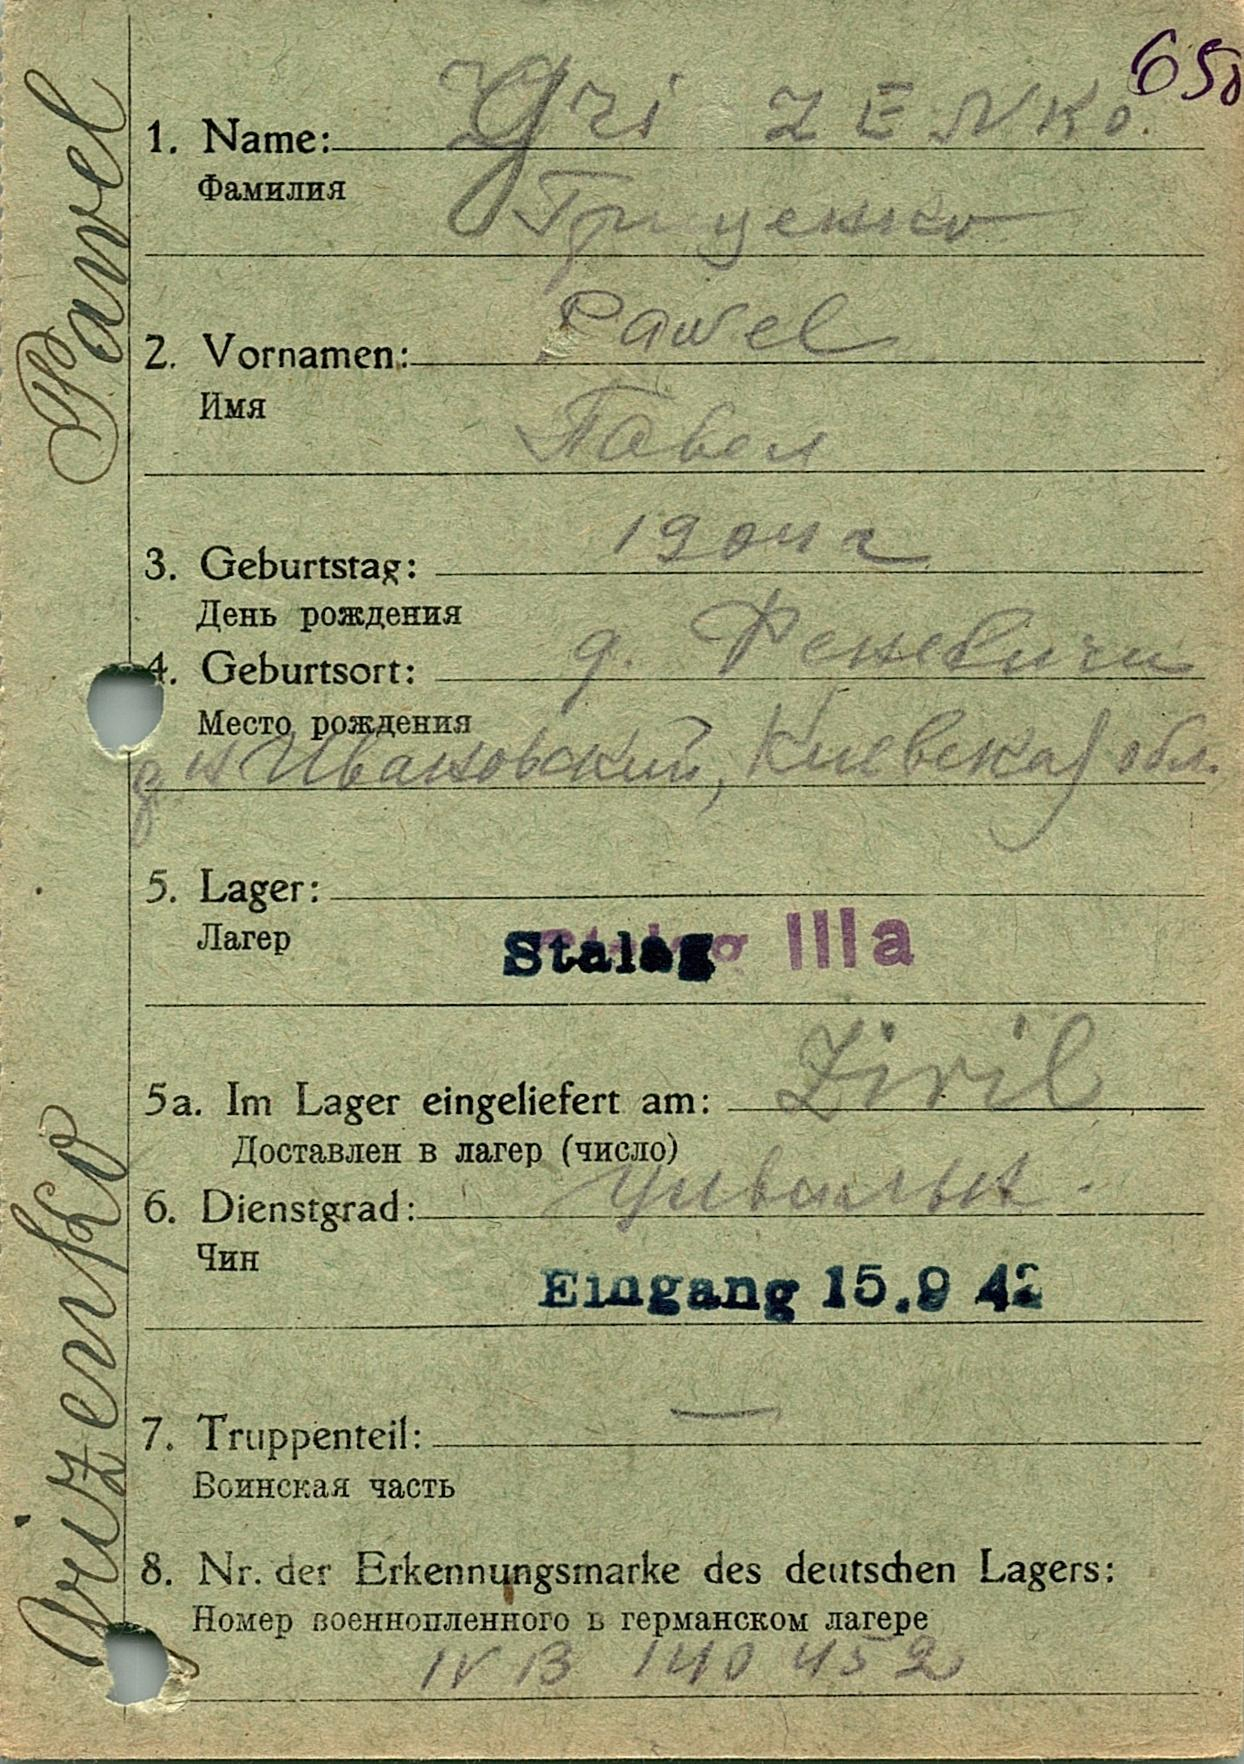 650
1. Name: Gri ZENKo.
Фамилия Гриценко
2. Vornamen: Pawel
Имя Павел
3. Geburtstag: 1904 г
День рождения
4. Geburtsort: д. Феневичи
Место рождения
р-н Ивановский, Киевская обл.
5. Lager:
Лагер Stalag IIIa
5a. Im Lager eingeliefert am: Zivil
Доставлен в лагер (число)
6. Dienstgrad:
Чин
Eingang 15.9 42
7. Truppenteil: —
Воинская часть
8. Nr. der Erkennungsmarke des deutschen Lagers:
Номер военнопленного в германском лагере
IV B 140 452
Grizenko Pawel